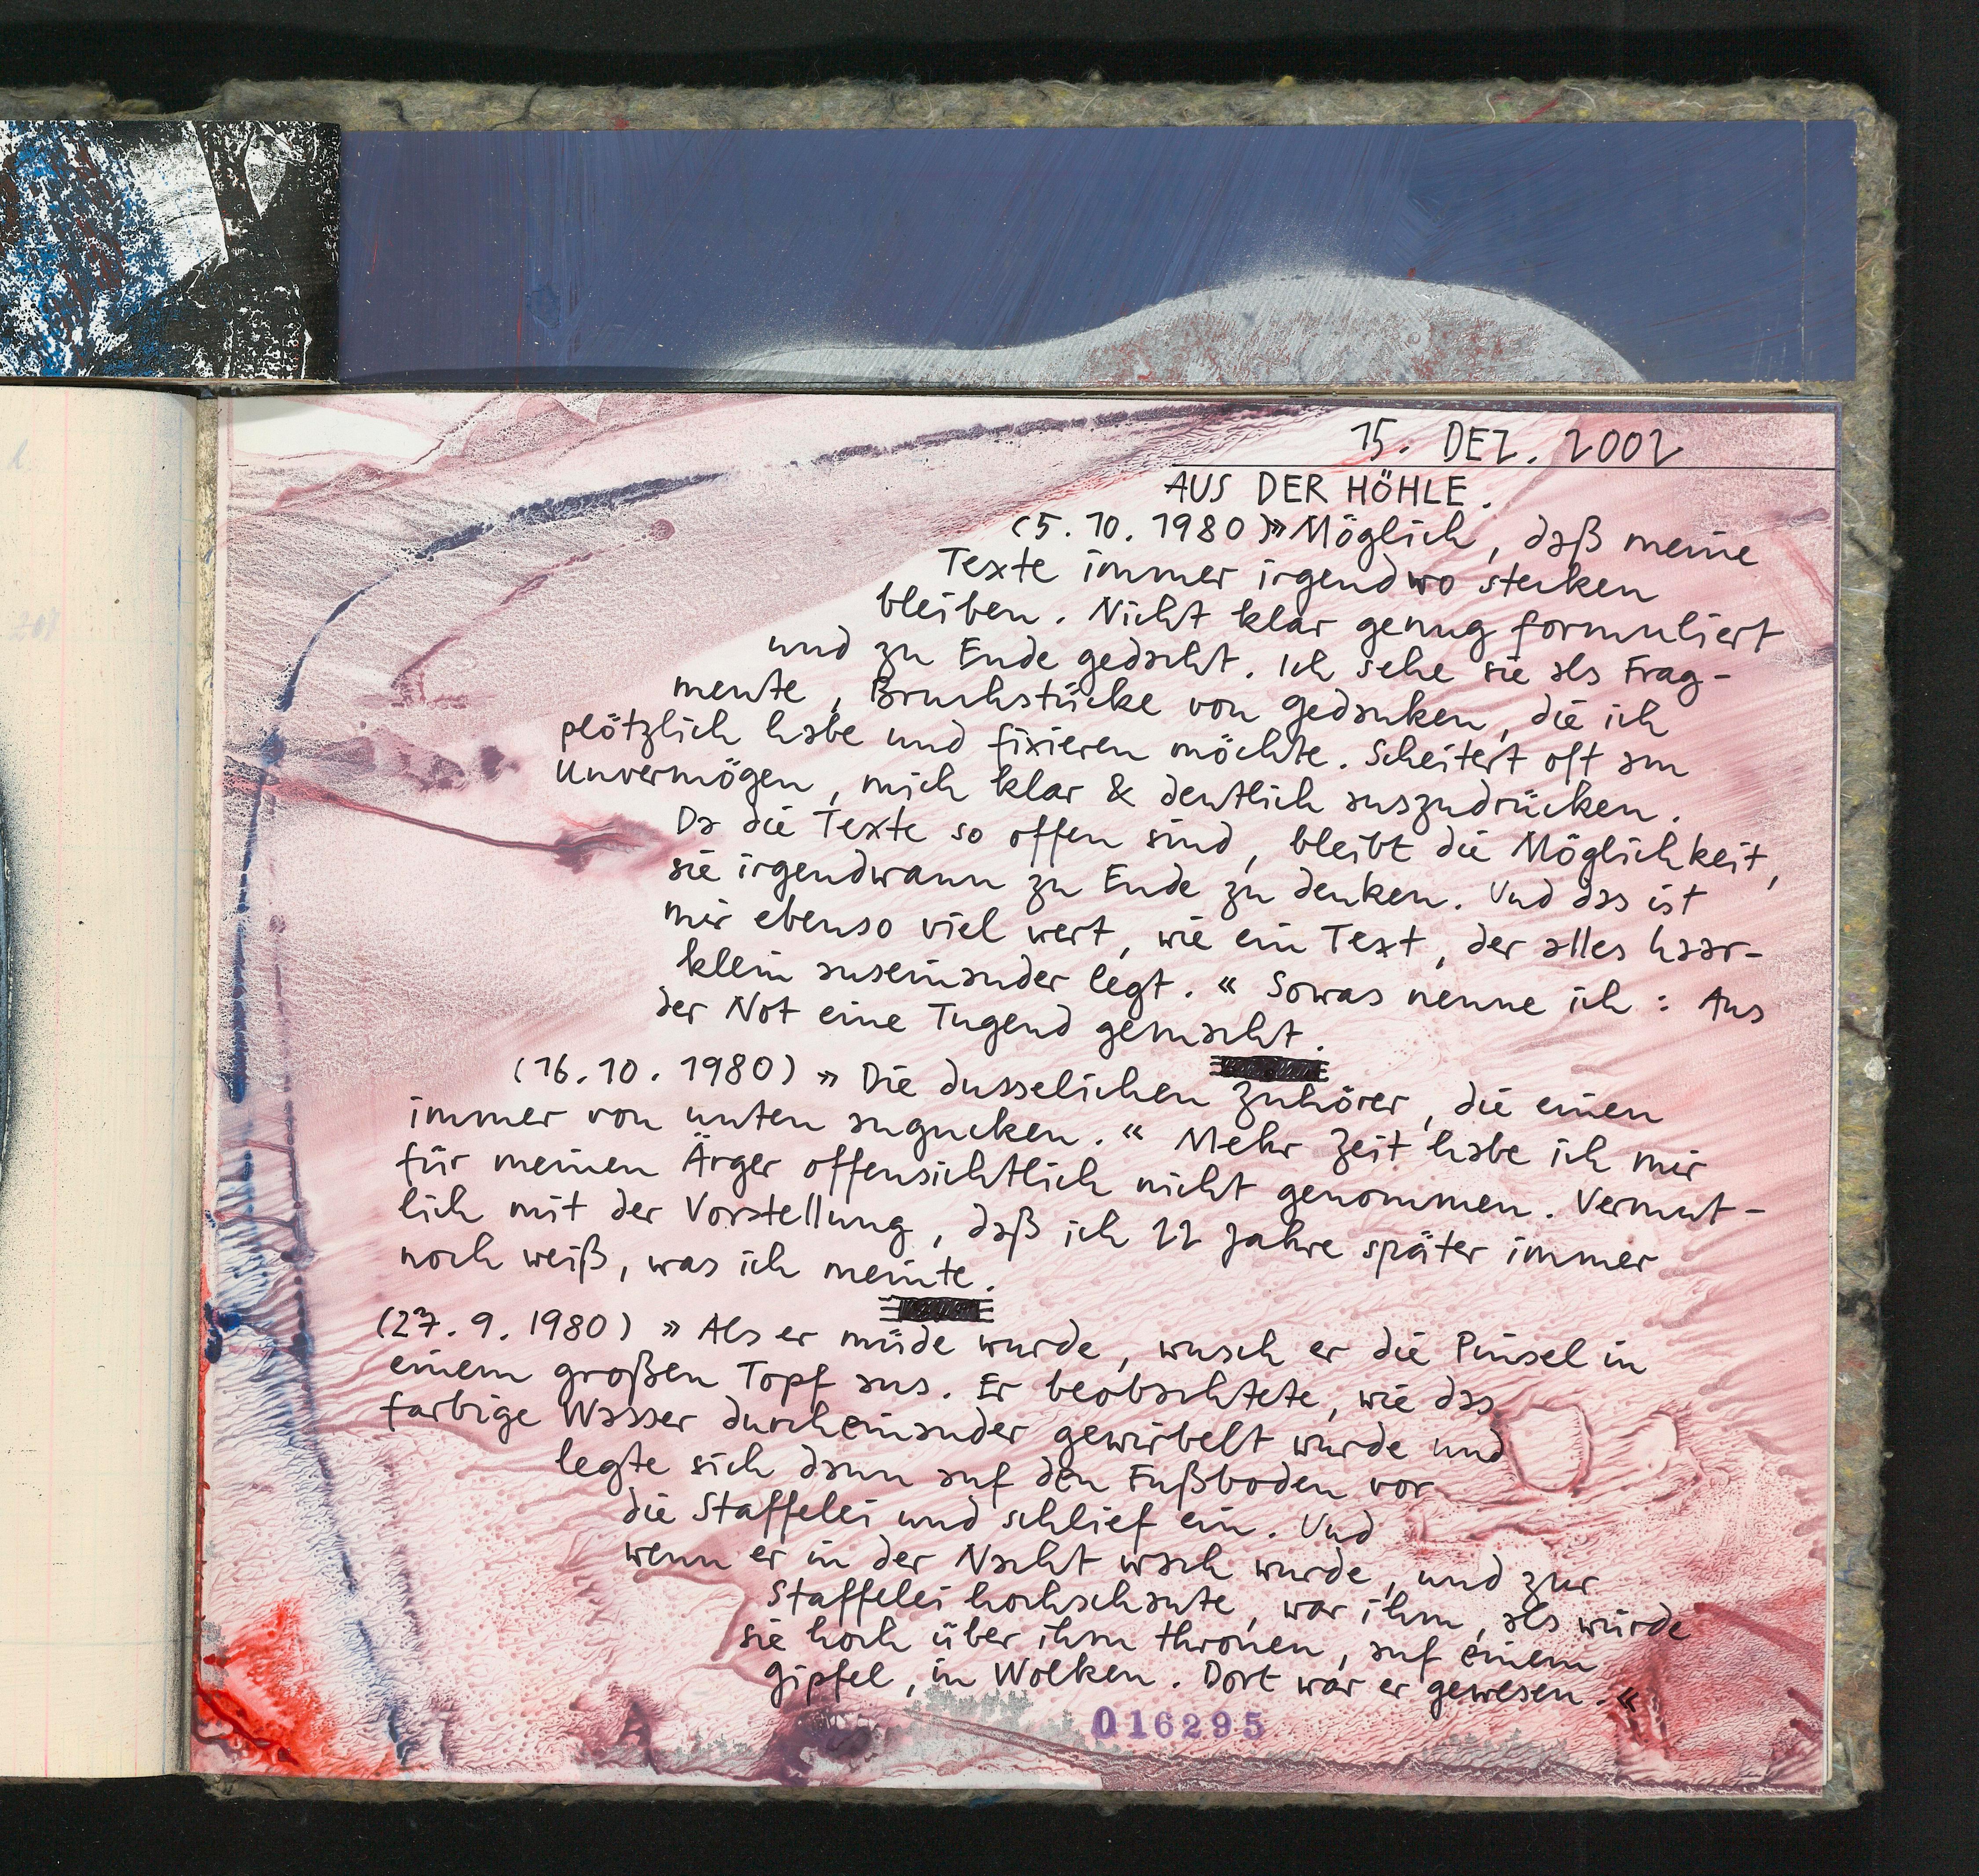 15. DEZ. 2002
AUS DER HÖHLE.
(5.10.1980) » Möglich, daß meine
Texte immer irgendwo stecken
bleiben. Nicht klar genug formuliert
und zu Ende gedacht. Ich sehe sie als Frag-
mente, Bruchstücke von Gedanken, die ich
plötzlich habe und fixieren möchte. Scheitert oft am
Unvermögen, mich klar & deutlich auszudrücken.
Da die Texte so offen sind, bleibt die Möglichkeit,
sie irgendwann zu Ende zu denken. Und das ist
mir ebenso viel wert, wie ein Text, der alles haar-
klein auseinander legt. « Sowas nenne ich: Aus
der Not eine Tugend gemacht.
(16.10.1980) » Die dusselichen Zuhörer, die einen
immer von unten angucken. « Mehr Zeit habe ich mir
für meinen Ärger offensichtlich nicht genommen. Vermut-
lich mit der Vorstellung, daß ich 22 Jahre später immer
noch weiß, was ich meinte.
(27.9.1980) » Als er müde wurde, wusch er die Pinsel in
einem großen Topf aus. Er beobachtete, wie das
farbige Wasser durcheinander gewirbelt wurde und
legte sich dann auf den Fußboden vor
die Staffelei und schlief ein. Und
wenn er in der Nacht wach wurde, und zur
Staffelei hochschaute, war ihm, als würde
sie hoch über ihm thronen, auf einem
Gipfel, in Wolken. Dort war er gewesen. «
016295